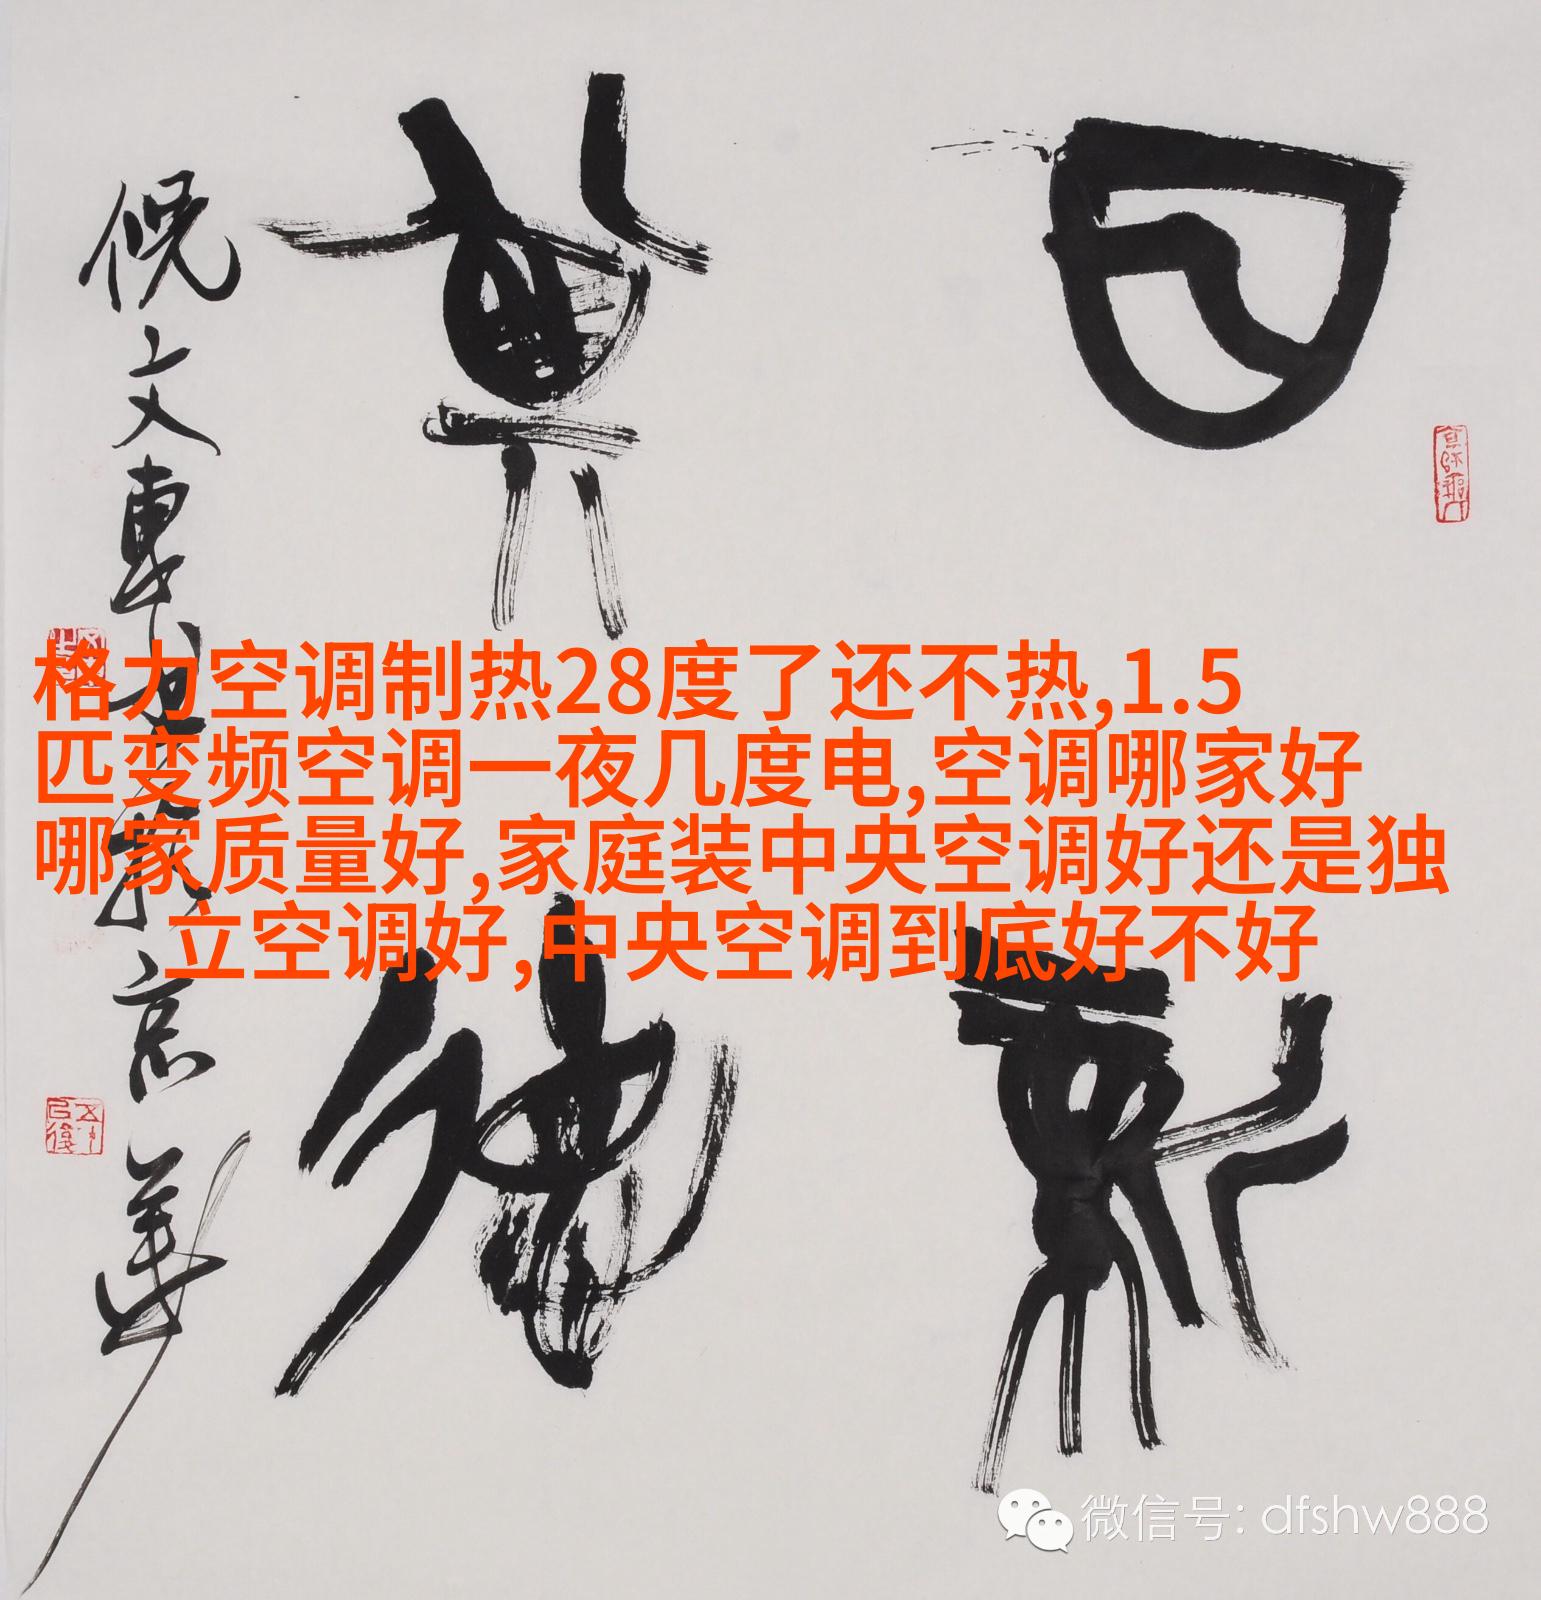 格力空调制热28度了还不热,1.5
匹变频空调一夜几度电,空调哪家好
哪家质量好,家庭装中央空调好还是独
立空调好,中央空调到底好不好
日
新
其
德
倪文東
京華
微信号: dfshw888